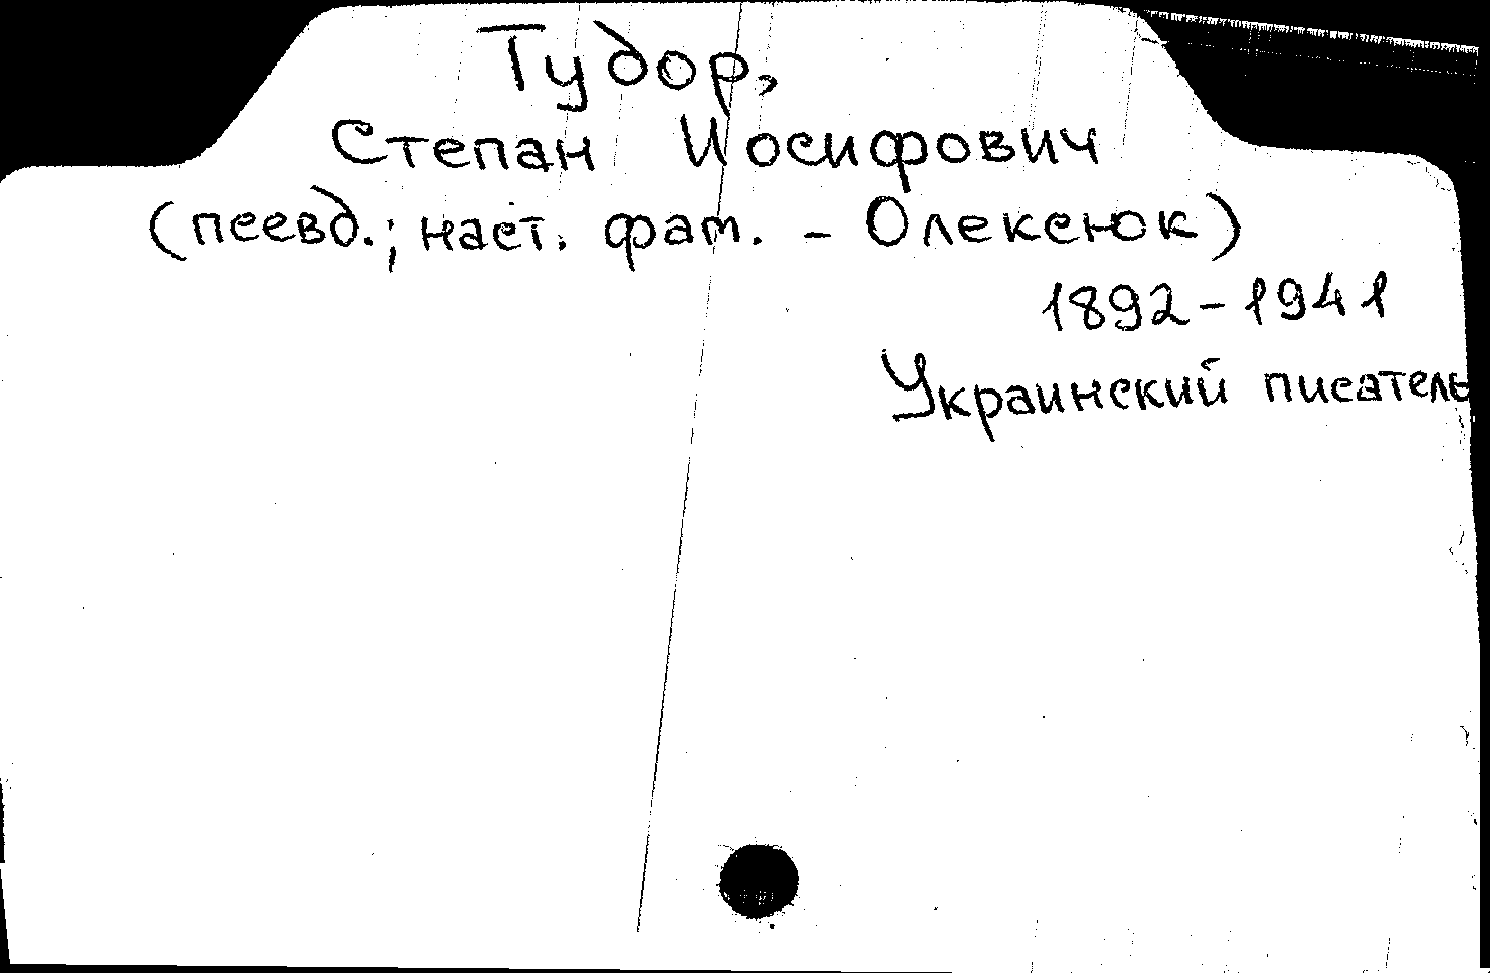 Тудор,
Степан Иосифович
(псевд.; наст. фам. - Олексюк)
1892-1941
Украинский писатель